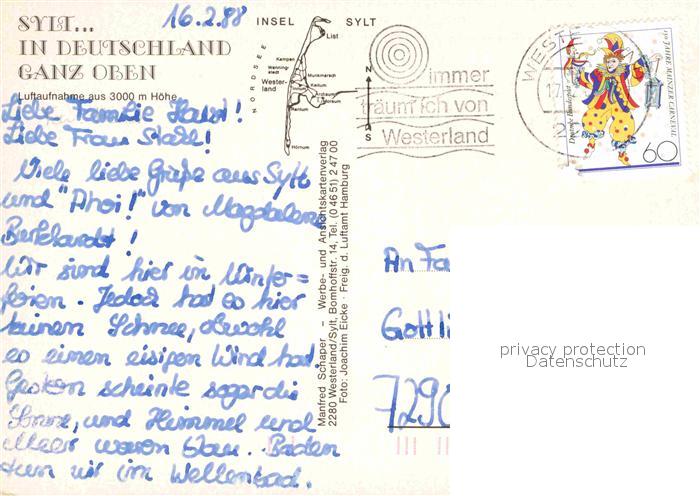 SYLT...
IN DEUTSCHLAND
GANZ OBEN
Luftaufnahme aus 3000 m Höhe
16.2.88
INSEL SYLT
NORDSEE
List
Kampen
Wenningstedt
Westerland
Munkmarsch
Keitum
Morsum
Rantum
Hörnum
N
S
immer
träum ich von
Westerland
WESTE
150 JAHRE MAINZER CARNEVAL
Deutsche Bundespost
60
Liebe Familie
Liebe Frau
Viele liebe Grüße aus Sylt
und "Ahoi!" von Magdalena
Burkhardt!
Wir sind hier in Winter=
ferien. Jedoch hat es hier
keinen Schnee, obwohl
es einen eisigen Wind hat.
Gestern scheinte sogar die
Sonne, und Himmel und
Meer waren blau. Baden
tun wir im Wellenbad.
Manfred Schaper – Werbe- und Ansichtskartenverlag
2280 Westerland/Sylt, Bomhoffstr. 14, Tel. (0 46 51) 2 47 00
Foto: Joachim Eicke · Freig. d. Luftamt Hamburg
An Fa
Gottli
729
privacy protection
Datenschutz